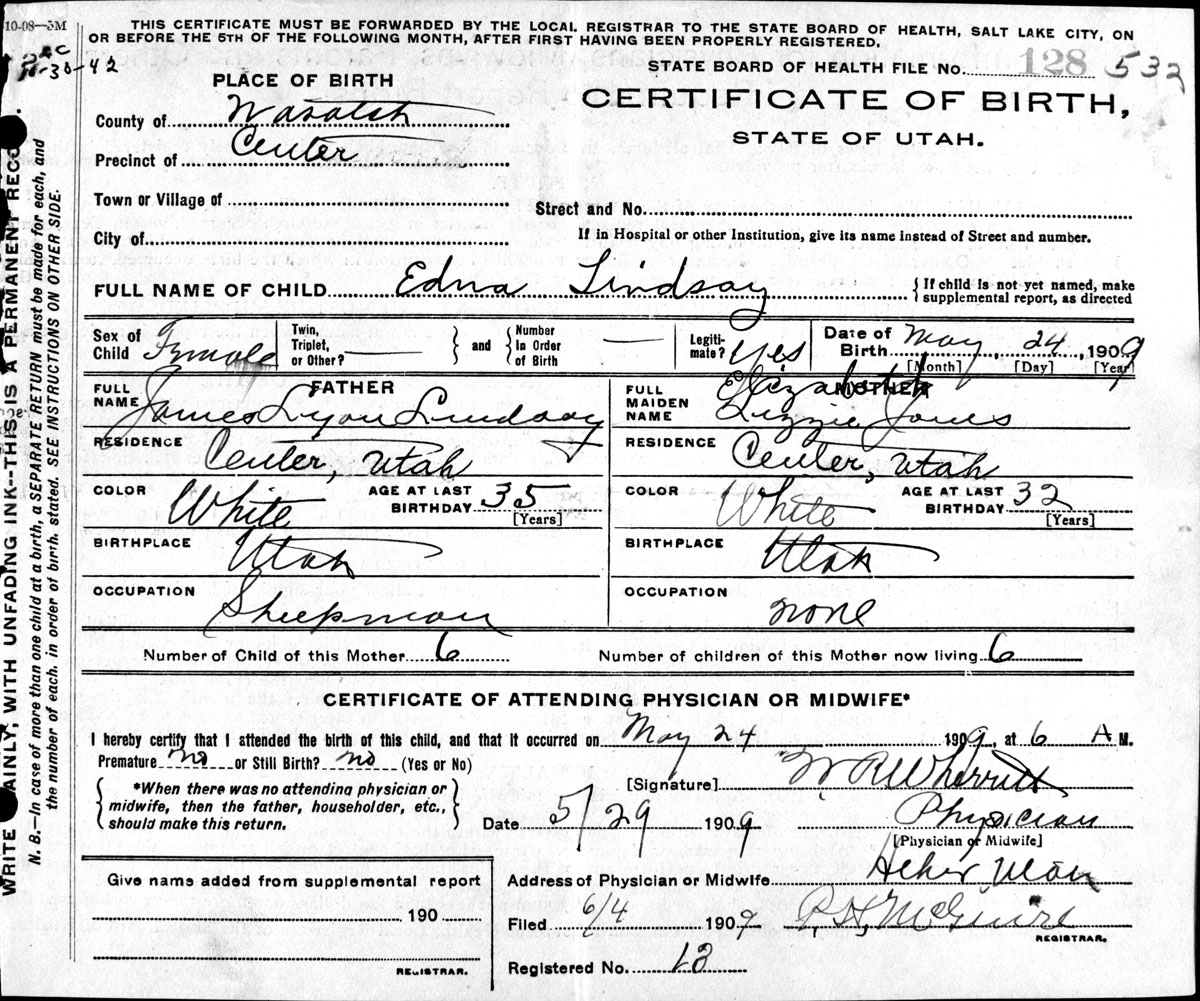 10-08-5M
THIS CERTIFICATE MUST BE FORWARDED BY THE LOCAL REGISTRAR TO THE STATE BOARD OF HEALTH, SALT LAKE CITY, ON
OR BEFORE THE 5TH OF THE FOLLOWING MONTH, AFTER FIRST HAVING BEEN PROPERLY REGISTERED.
11-30-42
STATE BOARD OF HEALTH FILE No. 128 532
PLACE OF BIRTH
CERTIFICATE OF BIRTH,
STATE OF UTAH.
County of Wasatch
Precinct of Center
Town or Village of
Street and No.
City of
If in Hospital or other Institution, give its name instead of Street and number.
FULL NAME OF CHILD Edna Lindsay { If child is not yet named, make supplemental report, as directed
Sex of Child Female
Twin, Triplet, or Other? — } and { Number In Order of Birth —
Legitimate? Yes
Date of Birth May 24, 1909
[Month] [Day] [Year]
FATHER
FULL NAME James Lyon Lindsay
RESIDENCE Center, Utah
COLOR White AGE AT LAST BIRTHDAY 35 [Years]
BIRTHPLACE Utah
OCCUPATION Sheepman
MOTHER
FULL MAIDEN NAME Elizabeth Lizzie Jones
RESIDENCE Center, Utah
COLOR White AGE AT LAST BIRTHDAY 32 [Years]
BIRTHPLACE Utah
OCCUPATION none
Number of Child of this Mother 6 Number of children of this Mother now living 6
CERTIFICATE OF ATTENDING PHYSICIAN OR MIDWIFE*
I hereby certify that I attended the birth of this child, and that it occurred on May 24 1909, at 6 A M.
Premature no or Still Birth? no (Yes or No)
{ *When there was no attending physician or midwife, then the father, householder, etc., should make this return. }
[Signature] W R Wherritt
Date 5/29 1909 Physician
[Physician or Midwife]
Address of Physician or Midwife Heber Utah
Filed 6/4 1909 McGuire
REGISTRAR.
Registered No. 13
Give name added from supplemental report
190
REGISTRAR.
WRITE AINLY, WITH UNFADING INK--THIS IS A PERMANENT RECO
N. B.—In case of more than one child at a birth, a SEPARATE RETURN must be made for each, and
the number of each, in order of birth, stated. SEE INSTRUCTIONS ON OTHER SIDE.